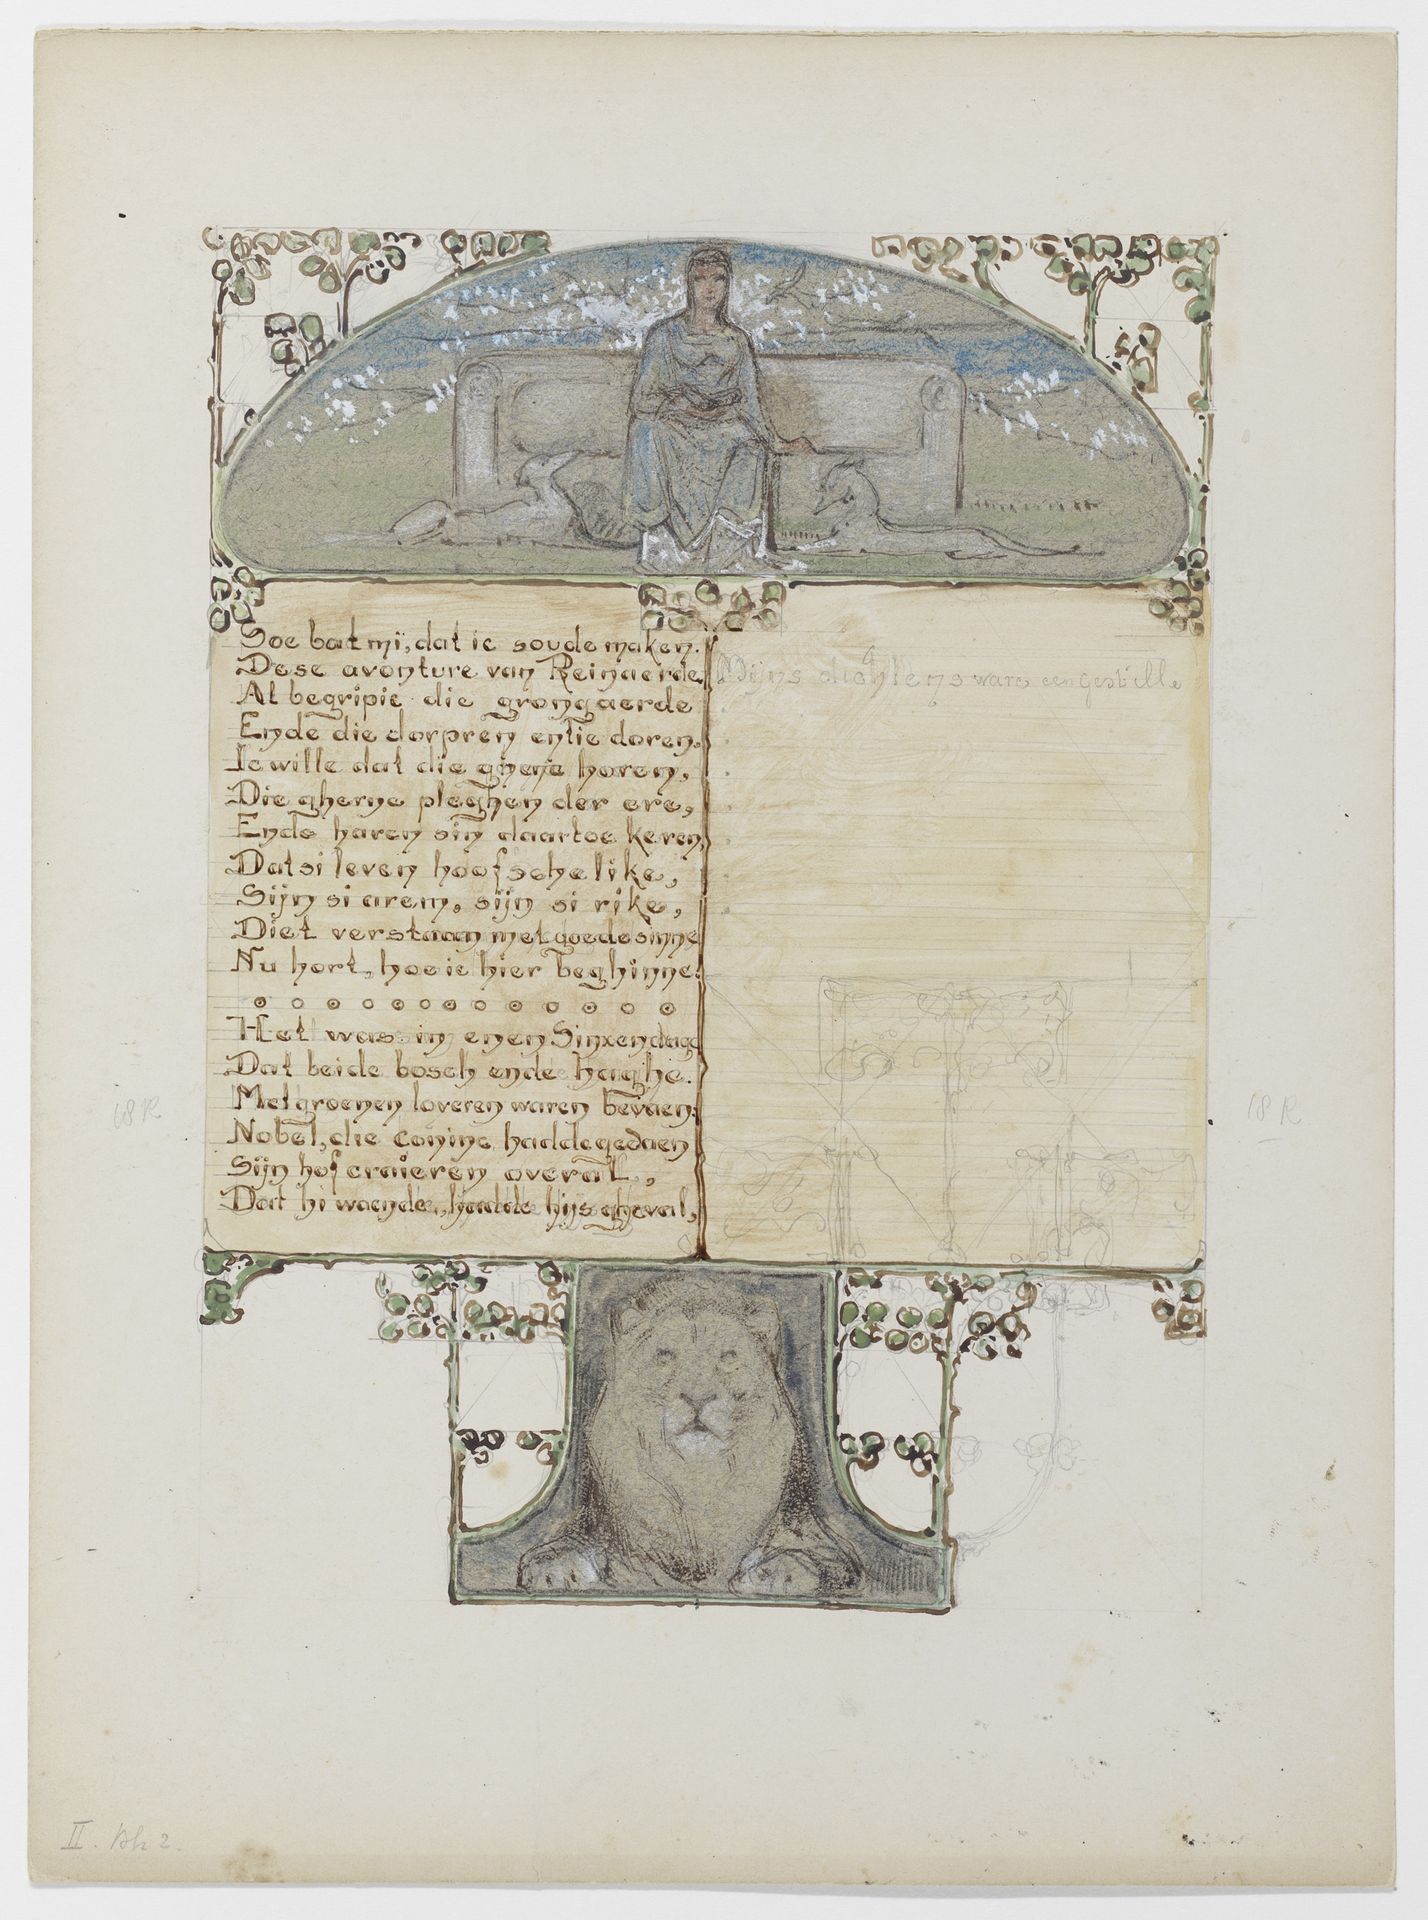 Soe bat mi, dat ic soude maken.
Dese avonture van Reinaerde.
Al begripic die grongaerde
Ende die dorpren entie doren.
Ic wille dat die ghene horen,
Die gherne pleghen der ere,
Ende haren sin daartoe keren,
Dat si leven hoofschelike,
Sijn si arem, sijn si rike,
Diet verstaan met goede sinne
Nu hort, hoe ic hier beghinne.
Het was in enen Sinxendage
Dat beide bosch ende haghe.
Met groenen loveren waren bevaen.
Nobel, die coninc hadde gedaen
Sijn hof craieren overal,
Dat hi waende, hadde hijs gheval,
Mijns dichtens ware een gestille
68 R
18 R
II. 2.